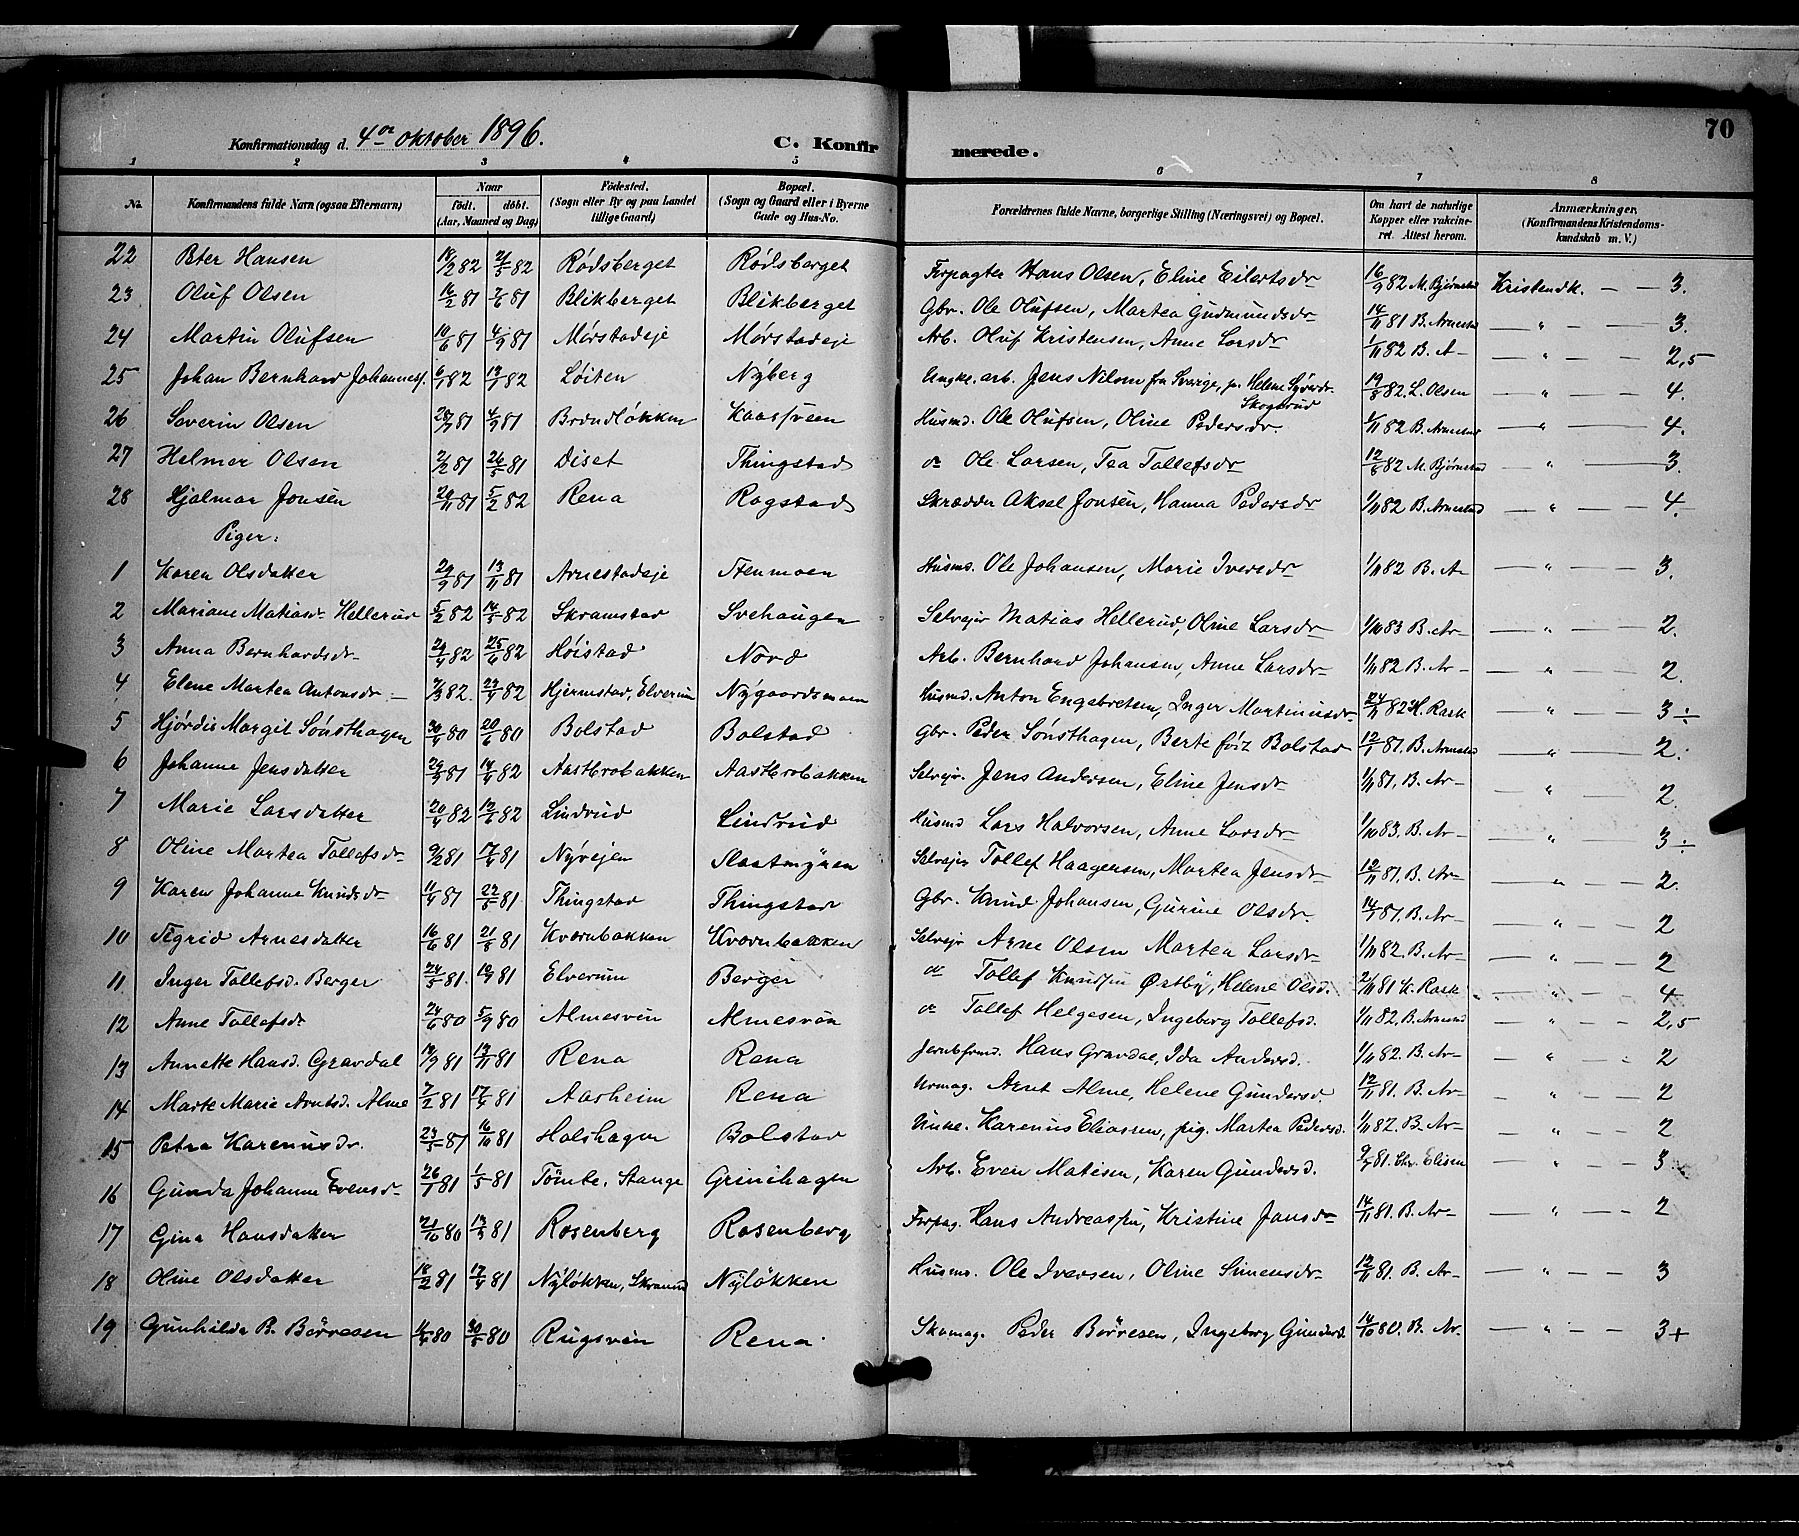 70
Konfirmationsdag d. 4de oktober 1896.
C. Konfirmerede.
1 2 3 4 5 6 7 8
No. Konfirmandens fulde Navn (ogsaa Efternavn) Naar født. døbt. (Aar, Maaned og Dag) Fødested. (Sogn eller By og paa Landet tillige Gaard) Bopæl. (Sogn og Gaard eller i Byerne Gade og Hus-No.) Forældrenes fulde Navne, borgerlige Stilling (Næringsvei) og Bopæl. Om havt de naturlige Kopper eller vakcineret. Attest herom. Anmærkninger. (Konfirmandens Kristendomskundskab m. V.)
22 Peter Hansen 18/2 82 21/5 82 Rødsberget Rødsberget Forpagter Hans Olsen, Eline Eilertsdr 16/9 82 M. Bjørnstad Kristendk. — — 3.
23 Oluf Olsen 16/2 81 7/6 81 Blikberget Blikberget Gbr. Ole Olufsen, Martea Gudmundsdr 14/11 81 B. Arnestad — " — — 3.
24 Martin Olufsen 10/6 81 4/9 81 Mørstadeje Mørstadeje Arb. Oluf Kristensen, Anne Larsdr 1/11 82 B. A — " — — 2,5
25 Johan Bernhard Johannesf. 6/1 82 19/1 82 Løiten Nyberg Ungk. arb. Jens Nilsen fra Sverige, p. Helene Syversdr. Skogsrud 19/8 82 L. Olsen — " — — 4.
26 Severin Olsen 28/7 81 4/9 81 Brændløkken Kaasveen Husmd. Ole Olufsen, Oline Pedersdr. 1/11 82 B. Arnestad — " — — 4.
27 Helmer Olsen 2/2 81 26/5 81 Diset Thingstad do Ole Larsen, Tea Tollefsdr 12/8 82 M. Bjørnstad — " — — 3.
28 Hjalmar Jonsen 29/11 81 5/2 82 Rena Rogstad Skrædder Aksel Jonsen, Hanna Pedersdr 1/11 82 B. Arnestad — " — — 4.
Piger:
1 Karen Olsdatter 29/9 81 13/11 81 Arnestadeje Stenmoen Husmd. Ole Johansen, Marie Iversdr 1/11 82 B. A — " — — 3.
2 Mariane Matiasdr Hellerud 5/2 82 14/5 82 Skramstad Svehaugen Selvejer Matias Hellerud, Oline Larsdr 1/10 83 B. Ar — " — — 2.
3 Anna Bernhardsdr 29/4 82 25/6 82 Høistad Nord Arb. Bernhard Johansen, Anne Larsdr 1/11 82 B. Ar — " — — 2.
4 Elene Martea Antonsdr 7/3 82 29/5 82 Hjermstad, Elverum Nygaardsmoen Husmd. Anton Engebretsen, Inger Martinusdr 24/11 82 K. Rask — " — — 3÷
5 Hjørdis Margit Sønsthagen 30/4 80 20/6 80 Bolstad Bolstad Gbr. Peder Sønsthagen, Berte født Bolstad 12/1 81 B. Arnestad — " — — 2.
6 Johanne Jensdatter 29/9 81 14/6 82 Aastbrobakken Aastbrobakken Selvejer Jens Andersen, Eline Jensdr 1/11 81 B. Ar — " — — 2.
7 Marie Larsdatter 20/4 82 12/6 82 Lindrud Lindrud Husmd Lars Halvorsen, Anne Larsdr 1/10 83. B. Ar — " — — 3÷
8 Oline Martea Tollefsdr 9/2 81 17/4 81 Nyvejen Slaatmyren Selvejer Tollef Haagensen, Martea Jensdr 12/11 81. B. Ar — " — — 2.
9 Karen Johanne Knudsdr 11/4 81 22/5 81 Thingstad Thingstad Gbr. Knud Johansen, Gurine Olsdr. 14/1 81. B. Ar — " — — 2
10 Sigrid Arnesdatter 16/6 81 21/8 81 Kvernbakken Kvernbakken Selvejer Arne Olsen Martea Larsdr 1/11 82. B. Ar — " — — 2
11 Inger Tollefsd. Berger 24/5 81 10/7 81 Elverum Berger do Tollef Knudsen Østby, Helene Olsd. 2/11 81 K. Rask " — — 4
12 Anne Tollefsdr 24/6 80 5/9 80 Almesvën Almesvën do Tollef Helgesen, Ingeborg Tollefsd. 1/11 82, B. Arnestad — " — — 2,5
13 Annette Hansd. Gravdal 19/9 81 13/11 81 Rena Rena Jernbfmd. Hans Gravdal, Ida Andersd. 1/11 82. B. Ar — " — — 2
14 Marte Marie Arntsd. Alme 7/2 81 17/4 81 Aarheim Rena Urmag. Arnt Alme, Helene Gundersd. 12/11 81. B. Ar — " — — 2
15 Petra Karenusdr. 23/5 81 16/10 81 Holshagen Bolstad Unke. Karenus Eliassen, pig. Martea Pedersd. 1/11 82. B. Ar — " — — 2
16 Gunda Johanne Evensdr 26/1 81 1/5 81 Tömte, Stange Grinihagen Arb. Even Matisen, Karen Gundersd. 9/7 81. Chr. Elisen — " — — 3
17 Gina Hansdatter 21/10 80 13/3 81 Rosenberg Rosenberg Forpag. Hans Andreassen, Kristine Jansdr 14/11 81. B. Ar — " — — 2
18 Oline Olsdatter 18/2 81 17/4 81 Nyløkken, Skramst Nyløkken Husmd. Ole Iversen, Oline Simensdr 12/11 81. B. Ar — " — — 3
19 Gunhilda B. Börresen 11/4 80 30/5 80 Rugsvën Rena Skomag. Peder Børresen, Ingeborg Gundersd. 14/10 80. B. Ar. — " — — 3+